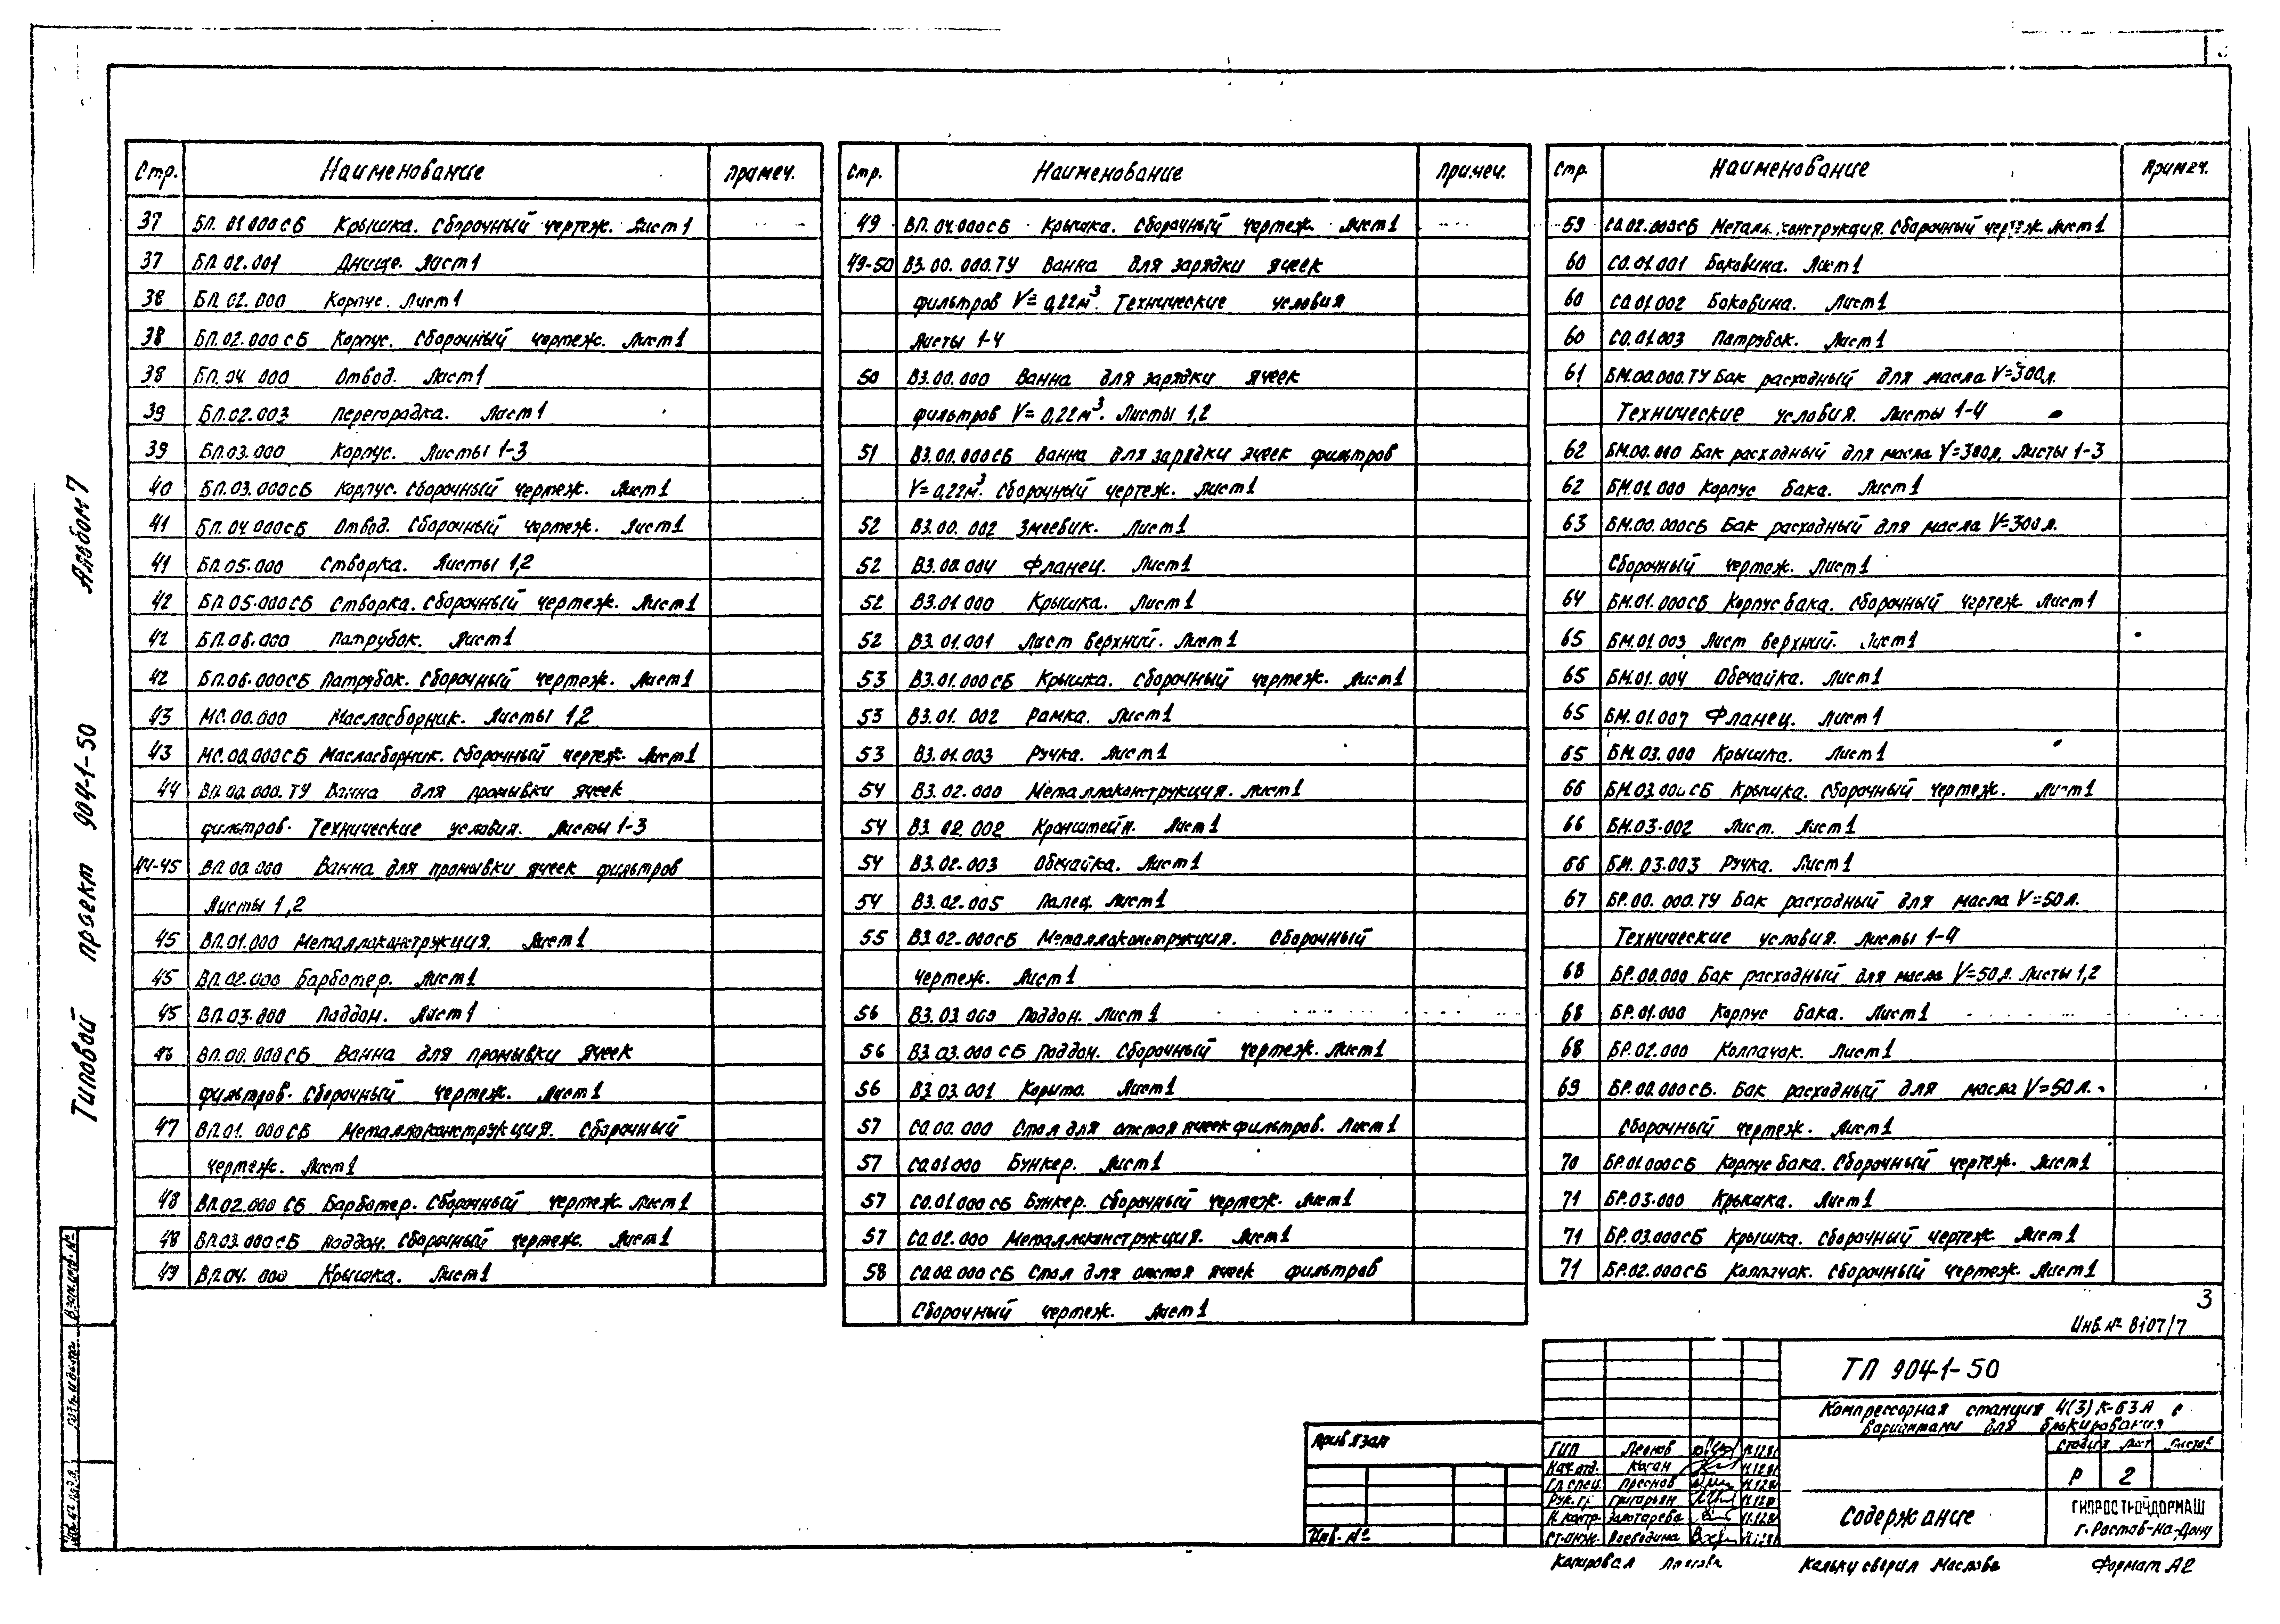 Альбом 7
Типовой проект 904-1-50
Стр. Наименование Примеч.
37 БП.01.000СБ Крышка. Сборочный чертеж. Лист1
37 БП.02.001 Днище. Лист1
38 БП.02.000 Корпус. Лист1
38 БП.02.000СБ Корпус. Сборочный чертеж. Лист1
38 БП.04.000 Отвод. Лист1
39 БП.02.003 Перегородка. Лист1
39 БП.03.000 Корпус. Листы 1-3
40 БП.03.000СБ Корпус. Сборочный чертеж. Лист1
41 БП.04.000СБ Отвод. Сборочный чертеж. Лист1
41 БП.05.000 Створка. Листы 1,2
42 БП.05.000СБ Створка. Сборочный чертеж. Лист1
42 БП.06.000 Патрубок. Лист1
42 БП.06.000СБ Патрубок. Сборочный чертеж. Лист1
43 МС.00.000 Маслосборник. Листы 1,2
43 МС.00.000СБ Маслосборник. Сборочный чертеж. Лист1
44 ВП.00.000.ТУ Ванна для промывки ячеек
фильтров. Технические условия. Листы 1-3
44-45 ВП.00.000 Ванна для промывки ячеек фильтров
Листы 1,2
45 ВП.01.000 Металлоконструкция. Лист1
45 ВП.02.000 Барботер. Лист1
45 ВП.03.000 Поддон. Лист1
46 ВП.00.000СБ Ванна для промывки ячеек
фильтров. Сборочный чертеж. Лист1
47 ВП.01.000СБ Металлоконструкция. Сборочный
чертеж. Лист1
48 ВП.02.000СБ Барботер. Сборочный чертеж. Лист1
48 ВП.03.000СБ Поддон. Сборочный чертеж. Лист1
49 ВП.04.000 Крышка. Лист1
Стр. Наименование Примеч.
49 ВП.04.000СБ Крышка. Сборочный чертеж. Лист1
49-50 ВЗ.00.000.ТУ Ванна для зарядки ячеек
фильтров V=0,22м³. Технические условия
Листы 1-4
50 ВЗ.00.000 Ванна для зарядки ячеек
фильтров V=0,22м³. Листы 1,2
51 ВЗ.00.000СБ Ванна для зарядки ячеек фильтров
V=0,22м³. Сборочный чертеж. Лист1
52 ВЗ.00.002 Змеевик. Лист1
52 ВЗ.00.004 Фланец. Лист1
52 ВЗ.01.000 Крышка. Лист1
52 ВЗ.01.001 Лист верхний. Лист1
53 ВЗ.01.000СБ Крышка. Сборочный чертеж. Лист1
53 ВЗ.01.002 Рамка. Лист1
53 ВЗ.01.003 Ручка. Лист1
54 ВЗ.02.000 Металлоконструкция. Лист1
54 ВЗ.02.002 Кронштейн. Лист1
54 ВЗ.02.003 Обечайка. Лист1
54 ВЗ.02.005 Палец. Лист1
55 ВЗ.02.000СБ Металлоконструкция. Сборочный
чертеж. Лист1
56 ВЗ.03.000 Поддон. Лист1
56 ВЗ.03.000СБ Поддон. Сборочный чертеж. Лист1
56 ВЗ.03.001 Корыто. Лист1
57 СО.00.000 Стол для отстоя ячеек фильтров. Лист1
57 СО.01.000 Бункер. Лист1
57 СО.01.000СБ Бункер. Сборочный чертеж. Лист1
57 СО.02.000 Металлоконструкция. Лист1
58 СО.00.000СБ Стол для отстоя ячеек фильтров
Сборочный чертеж. Лист1
Стр. Наименование Примеч.
59 СО.02.000СБ Металлоконструкция. Сборочный чертеж. Лист1
60 СО.01.001 Боковина. Лист1
60 СО.01.002 Боковина. Лист1
60 СО.01.003 Патрубок. Лист1
61 БМ.00.000.ТУ Бак расходный для масла V=300л.
Технические условия. Листы 1-4
62 БМ.00.000 Бак расходный для масла V=300л. Листы 1-3
62 БМ.01.000 Корпус бака. Лист1
63 БМ.00.000СБ Бак расходный для масла V=300л.
Сборочный чертеж. Лист1
64 БМ.01.000СБ Корпус бака. Сборочный чертеж. Лист1
65 БМ.01.003 Лист верхний. Лист1
65 БМ.01.004 Обечайка. Лист1
65 БМ.01.007 Фланец. Лист1
65 БМ.03.000 Крышка. Лист1
66 БМ.03.000СБ Крышка. Сборочный чертеж. Лист1
66 БМ.03.002 Лист. Лист1
66 БМ.03.003 Ручка. Лист1
67 БР.00.000.ТУ Бак расходный для масла V=50л.
Технические условия. Листы 1-4
68 БР.00.000 Бак расходный для масла V=50л. Листы 1,2
68 БР.01.000 Корпус бака. Лист1
68 БР.02.000 Колпачок. Лист1
69 БР.00.000СБ. Бак расходный для масла V=50л.
Сборочный чертеж. Лист1
70 БР.01.000СБ Корпус бака. Сборочный чертеж. Лист1
71 БР.03.000 Крышка. Лист1
71 БР.03.000СБ Крышка. Сборочный чертеж. Лист1
71 БР.02.000СБ Колпачок. Сборочный чертеж. Лист1
3
Инв.№ 8107/7
ТП 904-1-50
Компрессорная станция 4(3)К-63А с
вариантами для блокирования
Стадия Лист Листов
Р 2
Содержание
ГИПРОСТРОЙДОРМАШ
г. Ростов-на-Дону
ГИП Леонов
Нач.отд. Коган
Гл.спец. Преснов
Рук.гр. Григорьян
Н.контр. Золотарева
Ст.инж. Воеводина
Привязан
Инв.№
Взам.инв.№
Подп. и дата
Инв.№ подл.
Копировал
Кальку сверил Маслова
Формат А2